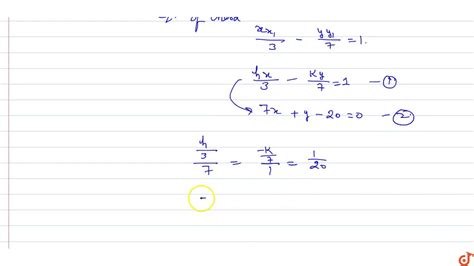 of chord
xx₁/3 - yy₁/7 = 1.
hx/3 - Ky/7 = 1 - ①
7x + y - 20 = 0 - ②
(h/3)/7 = (-K/7)/1 = 1/20
-